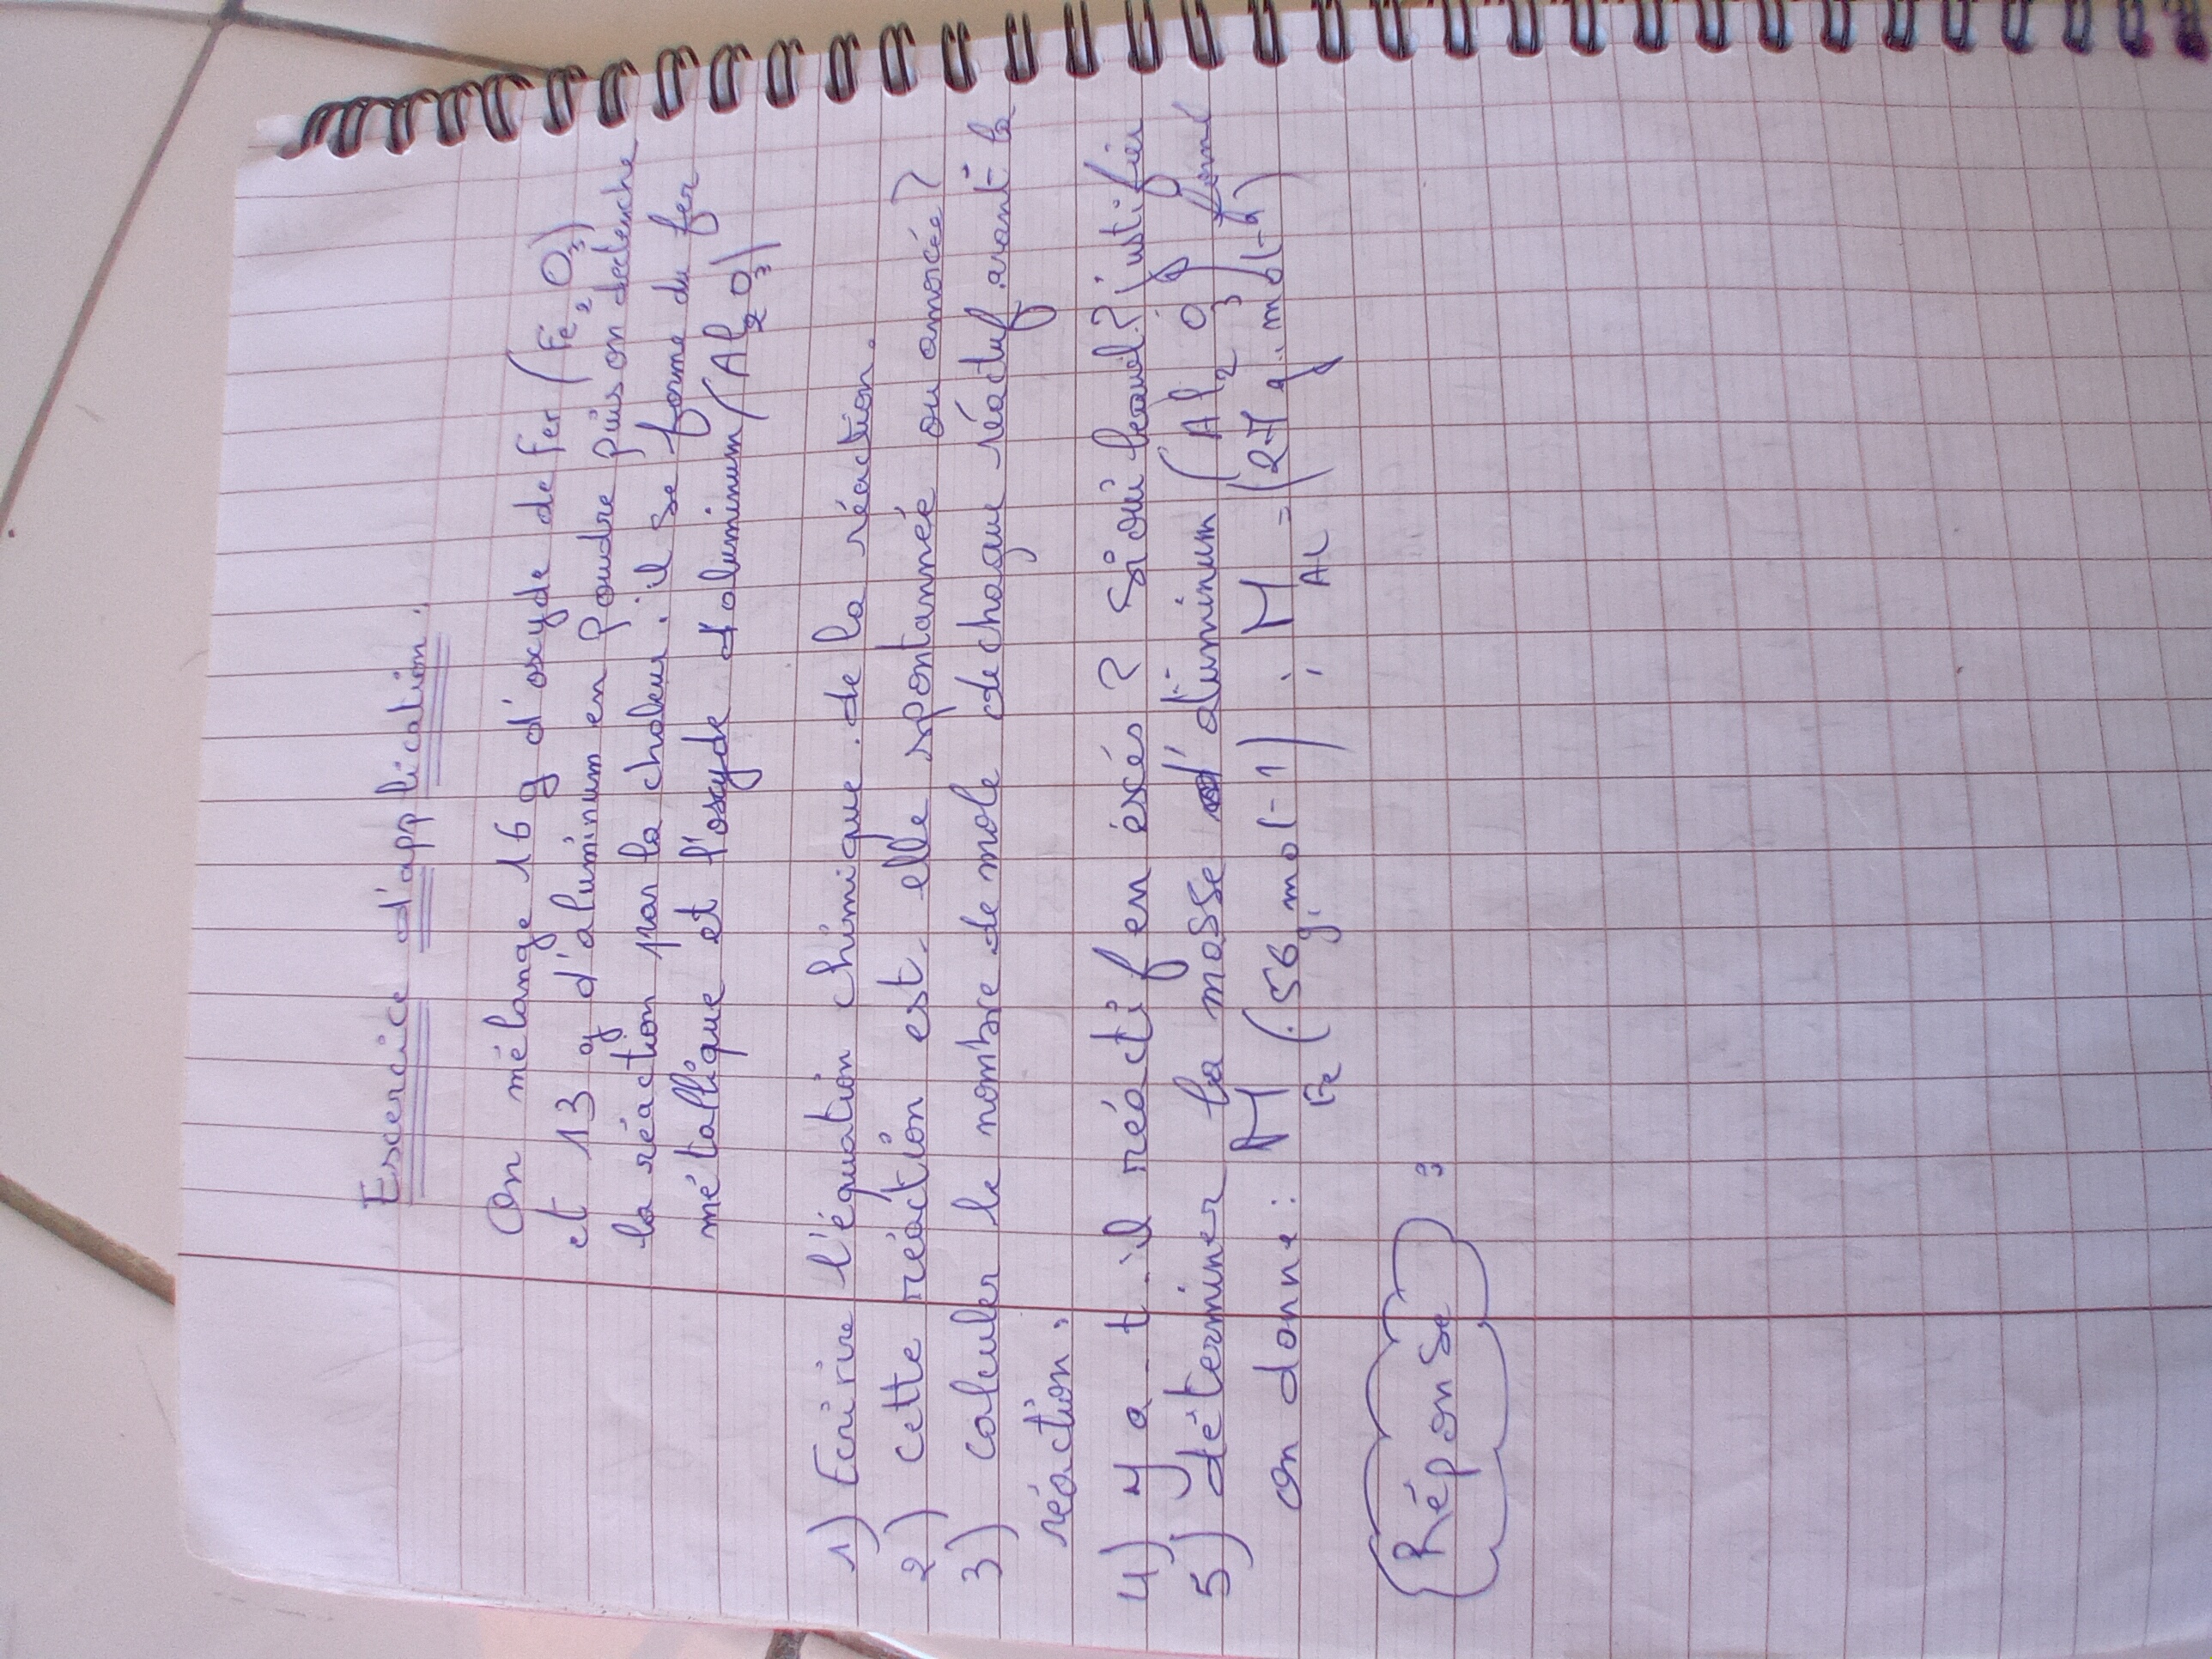 Exercice d'application.
On mélange 16 g d'oxyde de fer (Fe2 O3)
et 13 g d'aluminum en poudre puis on declenche
la réaction par la chaleur : il se forme du fer
métallique et l'oxyde d'aluminum (Al2 O3)
1) Ecrire l'équation chimique de la réaction.
2) cette réaction est-elle spontannée ou amorcée?
3) calculer le nombre de mole de chaque réactif avant la
réaction.
4) y a-t-il réactif en éxés ? Si oui lequel? justifier
5) déterminer la masse d'aluminum (Al2 O3) formé
on donne : MFe (56 g.mol-1) ; MAl = (27 g.mol-1)
Réponse :